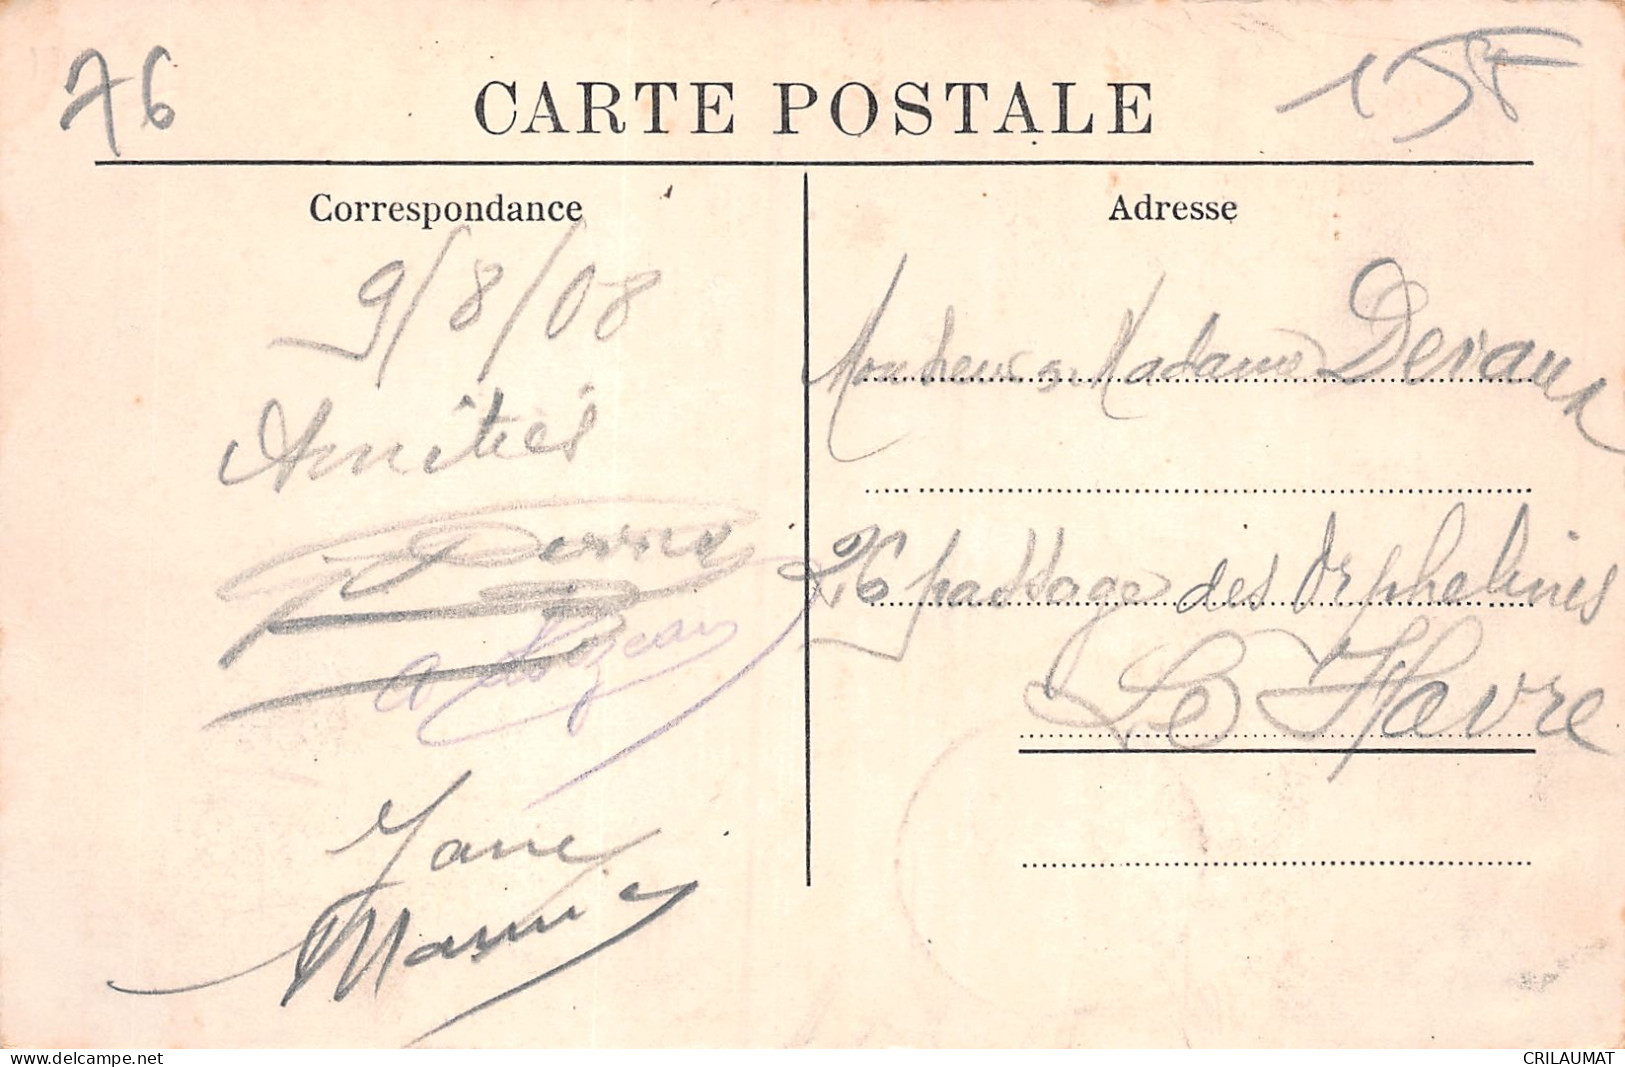 76
15F
CARTE POSTALE
Correspondance
Adresse
9/8/08
Amitiés
Jane
Monsieur & Madame Devaux
26 passage des Orphelines
Le Havre
delcampe.net
CRILAUMAT